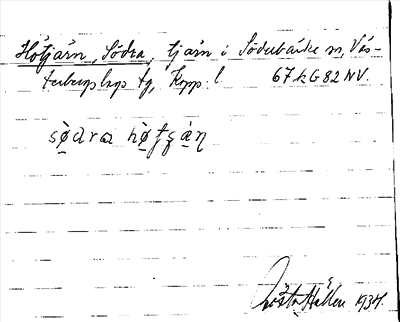 Hötjärn, Södra, tjärn i Söderbärke sn, Väs-
terbergslags tg, Kopp. l. 67.k G 82 NV.
Gösta Hallen 1934.